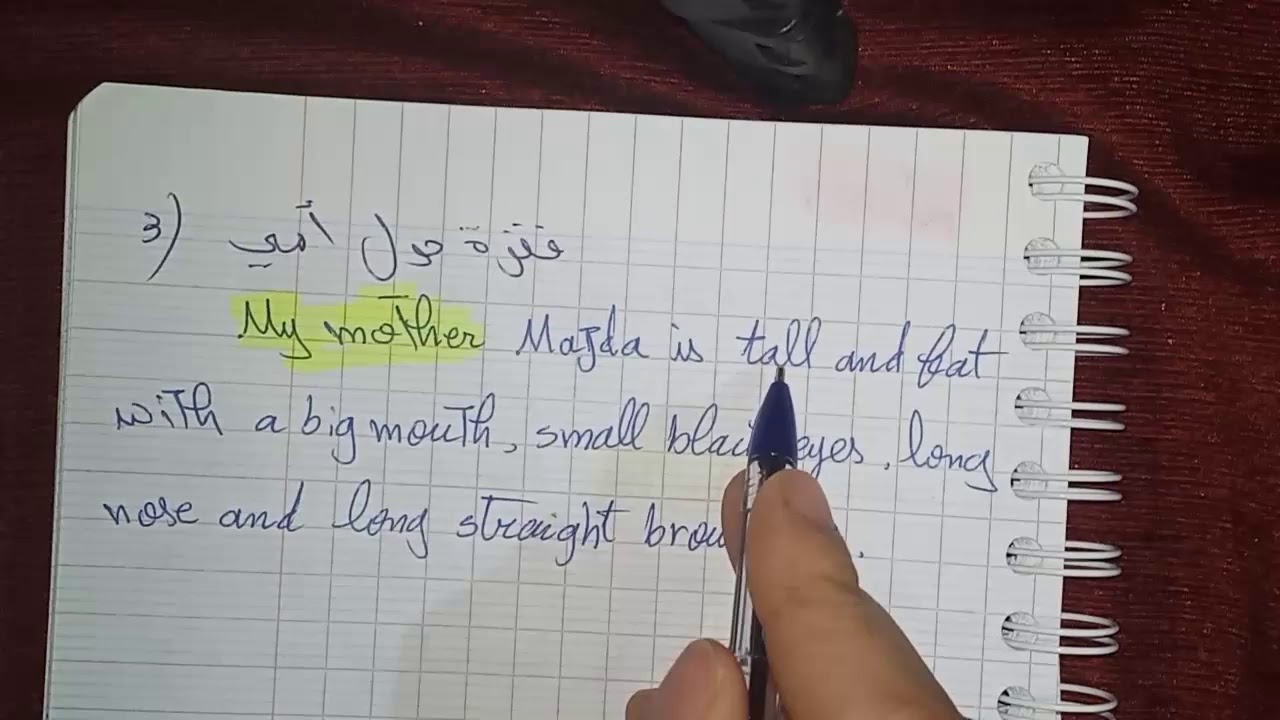 3) فقرة حول أمي
My mother Majda is tall and fat
with a big mouth, small eyes, long
nose and long straight